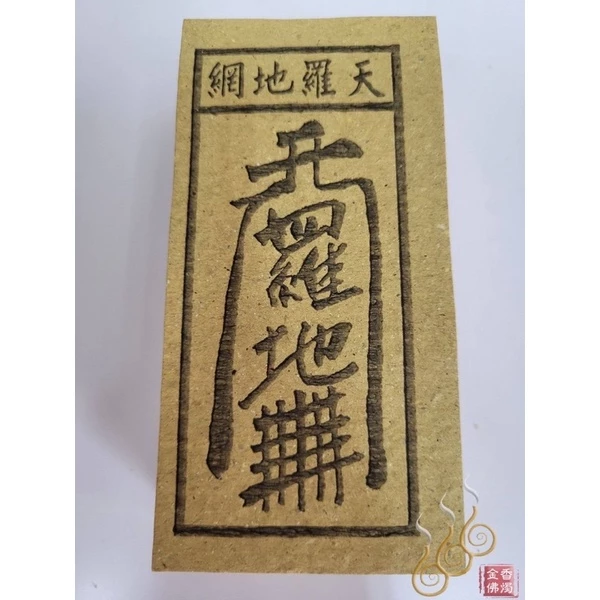 天羅地網
天羅地
金佛
香燭